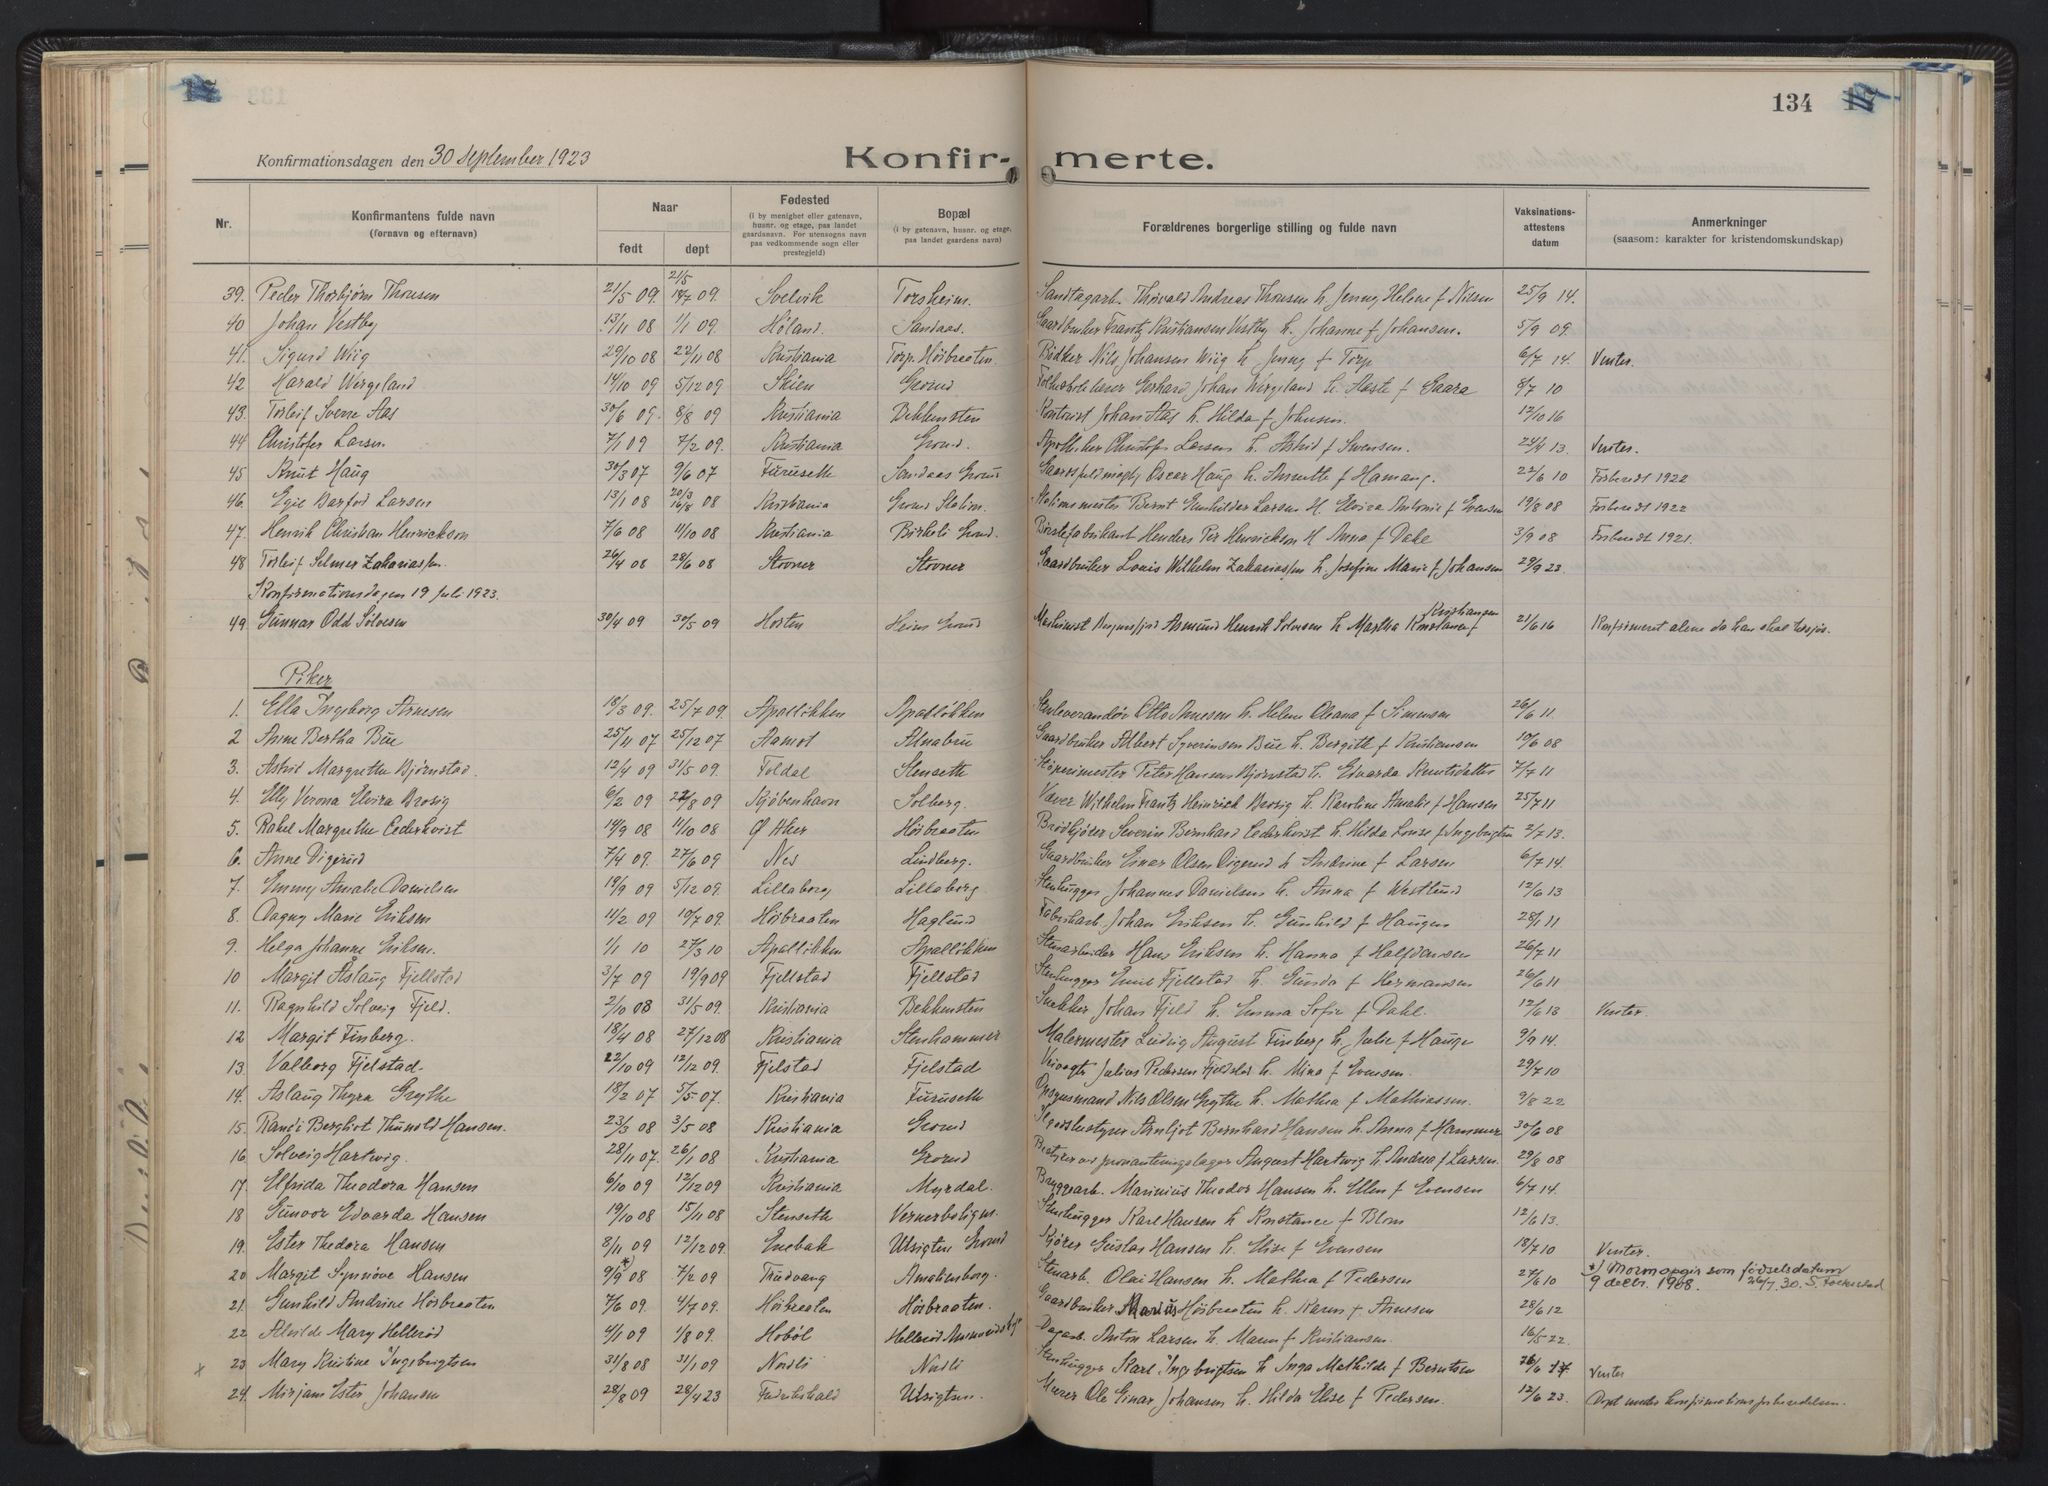 134
Konfirmationsdagen den 30 September 1923
Konfir- merte.
Nr.
Konfirmantens fulde navn
(fornavn og efternavn)
Naar
født
døpt
Fødested
(i by menighet eller gatenavn, husnr. og etage, paa landet gaardsnavn. For utensogns navn paa vedkommende sogn eller prestegjeld)
Bopæl
(i by gatenavn, husnr. og etage, paa landet gaardens navn)
Forældrenes borgerlige stilling og fulde navn
Vaksinations-attestens datum
Anmerkninger
(saasom: karakter for kristendomskundskap)
39. Peder Thorbjørn Thonsen 21/5 09. 21/5 18/7 09. Svelvik Torsheim. Sandtagarb. Thorvald Andreas Thonsen h. Jenny Helene f Nilsen 25/9 14.
40 Johan Vestby 13/11 08 1/1 09. Høland. Sandaas. Gaardbruker Frantz Kristiansen Vestby h. Johanne f Johansen. 5/9 09.
41. Sigurd Wiig 29/10 08 22/11 08 Kristiania Torp. Høibraaten. Bødker Nils Johansen Wiig h Jenny f Torp 6/7 14. Venter.
42 Harald Wergeland 14/10 09 5/12 09 Skien Grorud Gerhard Johan Wergeland h. Aaste f Gaara 8/7 10
43. Torleif Sverre Aas 30/6 09. 8/8 09 Kristiania Bekkensten Kontorist Johan Aas h. Hilda f Johnsen. 12/10 16
44 Christofer Larsen 7/1 09 7/2 09. Kristiania Grorud. Apotheker Christofer Larsen h. Astrid f Svensen. 24/4 13. Venter.
45 Knut Haug 30/3 07 9/6 07 Furuseth Sandaas Grorud Oscar Haug h. Annette f Hamang. 22/6 10 Forberedt 1922
46. Egil Barfod Larsen 13/1 08 20/3 16/8 08 Kristiania Grorud Station. Stationsmester Bernt Larsen H. Elvira Antonie f Evensen 19/8 08 Forberedt 1922
47. Henrik Christian Henrickson 7/6 08 11/10 08 Kristiania Birkeli Grorud. Børstefabrikant Henders Per Henrickson H Anna f Dahl 3/9 08 Forberedt 1921.
48 Torleif Selmer Zakariassen. 26/4 08 28/6 08 Stovner Stovner Gaardbruker Louis Wilhelm Zakariassen h. Josefine Marie f Johansen 29/9 23.
Konfirmationsdagen 19 Juli 1923.
49 Gunnar Odd Solvesen 30/4 09 30/5 09 Horten Heim Grorud Maskinist Asmund Henrik Solvesen h. Martha Konstance f Kristiansen 21/6 16 Konfirmeret alene da han skal tilsjøs.
Piker
1. Ella Ingeborg Arnesen 18/3 09. 25/7 09. Apalløkken Apalløkken Stenleverandør Otto Arnesen h. Helene Oleana f Simensen 26/6 11.
2 Anne Bertha Bue 25/11 07 25/12 07 Aamot Alnabru Gaardbruker Albert Syverinsen Bue h. Bergith f Kristiansen 10/6 08
3. Astrid Margrethe Bjørnstad. 12/4 09 31/5 09. Foldal Stenseth Støperimester Peter Hansen Bjørnstad h. Edvarda Knutsdatter 7/7 11
4. Elly Verona Elvira Brosig 6/2 09 22/8 09 Kjøbenhavn Solberg. Væver Wilhelm Frantz Heinrich Brosig h. Karoline Amalie f Hansen 25/7 11
5. Rakel Margrethe Cederkvist 14/9 08 11/10 08 Ø Aker Høibraaten Brødkjører Severin Bernhard Cederkvist h. Hilda Louise f Ingebrigtsen 2/7 13.
6. Anne Digerud 7/4 09. 27/6 09 Nes Lindberg. Gaardbruker Einar Olsen Digerud h Andrine f Larsen 6/7 14.
7. Emmy Amalie Danielsen 19/9 09 5/12 09 Lilleborg Lilleborg Stenhugger Johannes Danielsen h. Anna f Westlund 12/6 13
8. Dagny Marie Eriksen 11/2 09 18/7 09. Høibraaten Haglund Fabrikarb. Johan Eriksen h. Gunhild f Haugen 28/1 11
9. Helga Johanne Eriksen. 1/1 10 27/3 10 Apalløkken Apalløkken Stenarbeider Hans Eriksen h. Hanna f Halfdansen 26/7 11
10 Margit Aslaug Fjellstad 3/7 09 19/9 09 Fjellstad Fjellstad Stenhugger Emil Fjellstad h. Gunda f Hermansen 26/6 11
11. Ragnhild Solveig Fjeld. 2/10 08 31/5 09. Kristiania Bekkensten Snekker Johan Fjeld h. Emma Sofie f Dahl. 12/6 13 Venter.
12 Margit Finberg. 18/4 08 27/12 08 Kristiania Stenhammer Malermester Ludvig August Finberg h. Julie f Hauge 9/9 14.
13. Valborg Fjelstad. 22/10 09 12/12 09. Fjelstad Fjelstad Veivogter Julius Pedersen Fjeldstad h. Mina f Evensen. 29/7 10
14. Aslaug Thyra Grythe 18/2 07 5/5 07. Kristiania Furuseth Opsynsmand Nils Olsen Grythe h. Mathea f Mathiassen. 9/8 22
15. Randi Bergliot Thunold Hansen. 23/3 08 3/5 08 Kristiania Grorud Arnljot Bernhard Hansen h. Anna f Hammer 30/6 08
16. Solveig Hartwig. 28/11 07. 26/1 08 Kristiania Grorud Bestyrer ved proviantringslager August Hartwig h. Andrea f Larsen. 29/8 08
17. Elfrida Theodora Hansen 6/10 09 12/12 09 Kristiania Myrdal. Bryggarb. Marinius Theodor Hansen h. Ellen f Evensen 6/7 14.
18 Gunvor Edvarda Hansen 19/10 08 15/11 08 Stenseth Vernerboligen. Stenhugger Karl Hansen h Konstance f Blom 12/6 13.
19. Ester Thedora Hansen 8/11 09 12/12 09. Enebak Utsigten Grorud Kjører Gustav Hansen h. Elise f Evensen 18/7 10 Venter.
20 Margit Synnøve Hansen 9/9 08 *) 7/2 09 Trudvang Amalienborg. Stenarb. Olai Hansen h. Mathea f Pedersen 27/6 10 *) Moren opgir som fødselsdatum 9 decbr. 1908. 26/7 30. S.
21. Gunhild Andrine Høibraaten 7/6 09. 4/7 09. Høibraaten Høibraaten. Gaardbruker Marius Høibraaten h. Karen f Arnesen 28/6 12
22 Alvilde Mary Hellerød 4/1 09 1/8 09. Hobøl Hellerød Dagarb. Anton Larsen h. Maren f Kristiansen. 16/5 22.
x 23. Mary Kristine Ingebrigtsen 31/8 08 31/1 09 Nordli Nordli Stenhugger Karl Ingebrigtsen h Inga Mathilde f Berntsen 26/6 17 Venter
24. Mirjam Ester Johansen 28/8 09 28/4 23 Fredrikshald Utsigten. Murer Ole Einar Johansen h. Hilda Elise f Pedersen. 12/6 23. Døpt under konfirmationsforberedelsen.